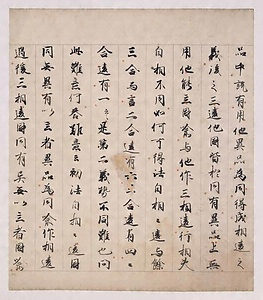 品中既有用他異品為同得成相違之
義後之三違他同皆於同有異品上無
用他能立同喻與他作三相違行相
自相不同如何可得法自相違與餘
三合与言二合違有六三合違有四
合違有一是第二義勢不同難也問
此難意何答難意云初法自相違
同無異有以異品為同喻作相違
過後三相違同有異無以者同喻